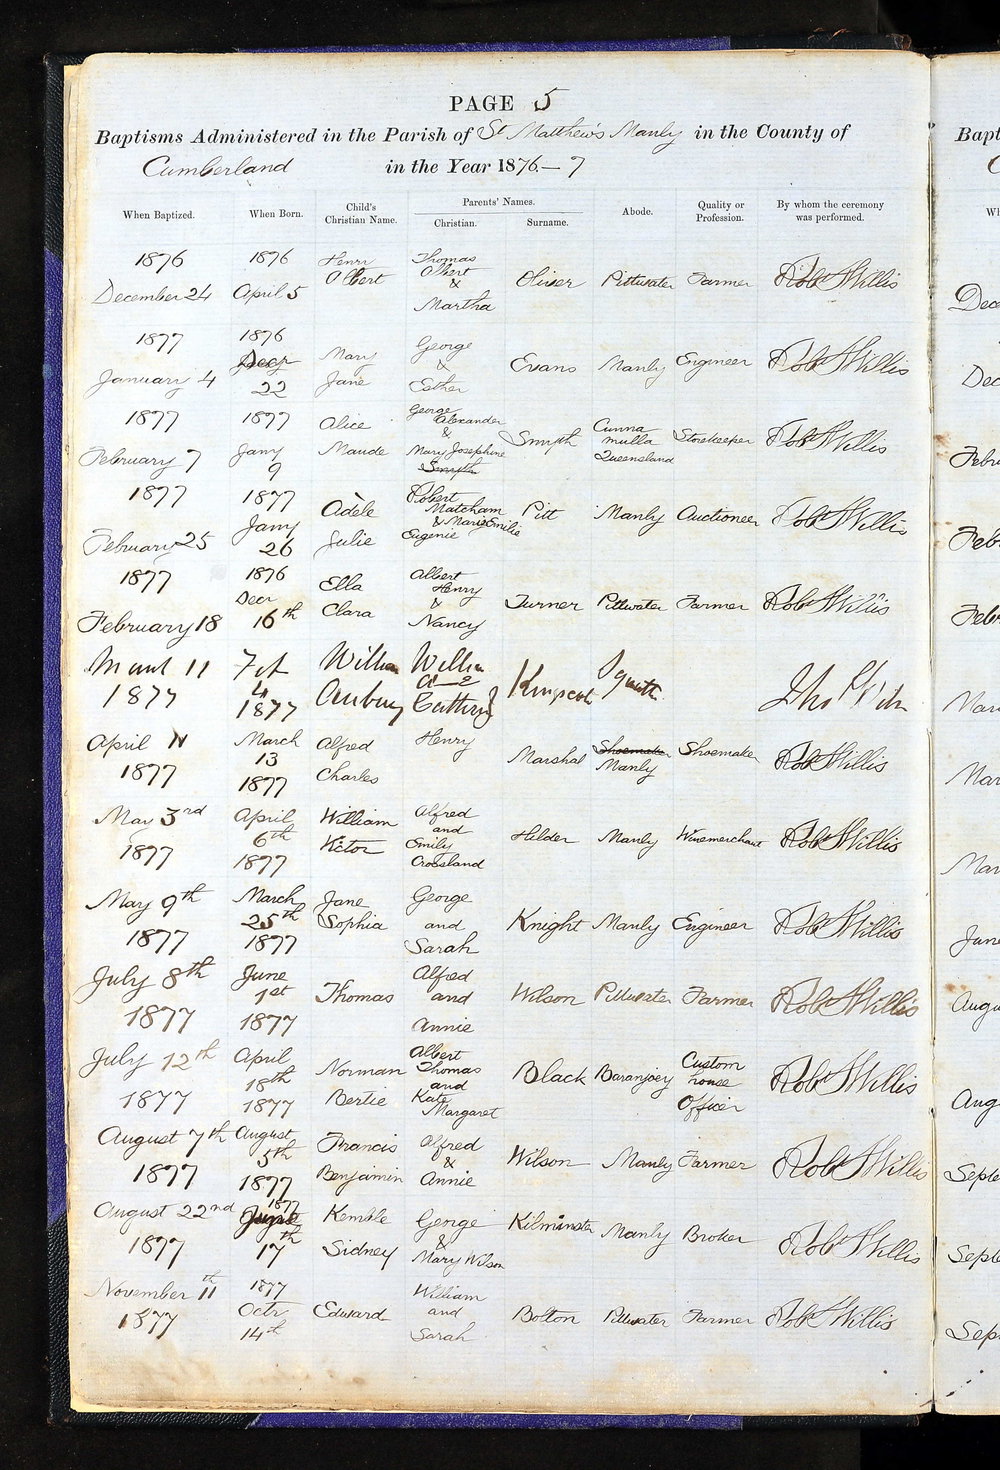 PAGE 5
Baptisms Administered in the Parish of St Matthew's Manly in the County of
Cumberland in the Year 1876 – 7
When Baptized. When Born. Child's Christian Name. Parents' Names. Christian. Surname. Abode. Quality or Profession. By whom the ceremony was performed.
1876 December 24 1876 April 5 Henry Albert Thomas Albert & Martha Oliver Pittwater Farmer Robt S Willis
1877 January 4 1876 Decr 22 Mary Jane George & Esther Evans Manly Engineer Robt S Willis
1877 February 7 1877 Jany 9 Alice Maude George Alexander & Mary Josephine Smyth Smyth Cunna mulla Queensland Storekeeper Robt S Willis
1877 February 25 1877 Jany 26 Adèle Julie Robert Matcham & Marie Emilie Eugenie Pitt Manly Auctioneer Robt S Willis
1877 February 18 1876 Decr 16th Ella Clara Albert Henry & Nancy Turner Pittwater Farmer Robt S Willis
11 1877 4 1877 William
April 11 1877 March 13 1877 Alfred Charles Henry Marshal Shoemaker Manly Shoemaker Robt S Willis
May 3rd 1877 April 6th 1877 William Victor Alfred and Emily Crossland Hilder Manly Winemerchant Robt S Willis
May 9th 1877 March 25th 1877 Jane Sophia George and Sarah Knight Manly Engineer Robt S Willis
July 8th 1877 June 1st 1877 Thomas Alfred and Annie Wilson Pittwater Farmer Robt S Willis
July 12th 1877 April 18th 1877 Norman Bertie Albert Thomas and Kate Margaret Black Baranjoey Custom house Officer Robt S Willis
August 7th 1877 August 5th 1877 Francis Benjamin Alfred & Annie Wilson Manly Farmer Robt S Willis
August 22nd 1877 1877 June 17th Kemble Sidney George & Mary Wilson Kilminster Manly Broker Robt S Willis
November 11th 1877 1877 Octr 14th Edward William and Sarah Bolton Pittwater Farmer Robt S Willis